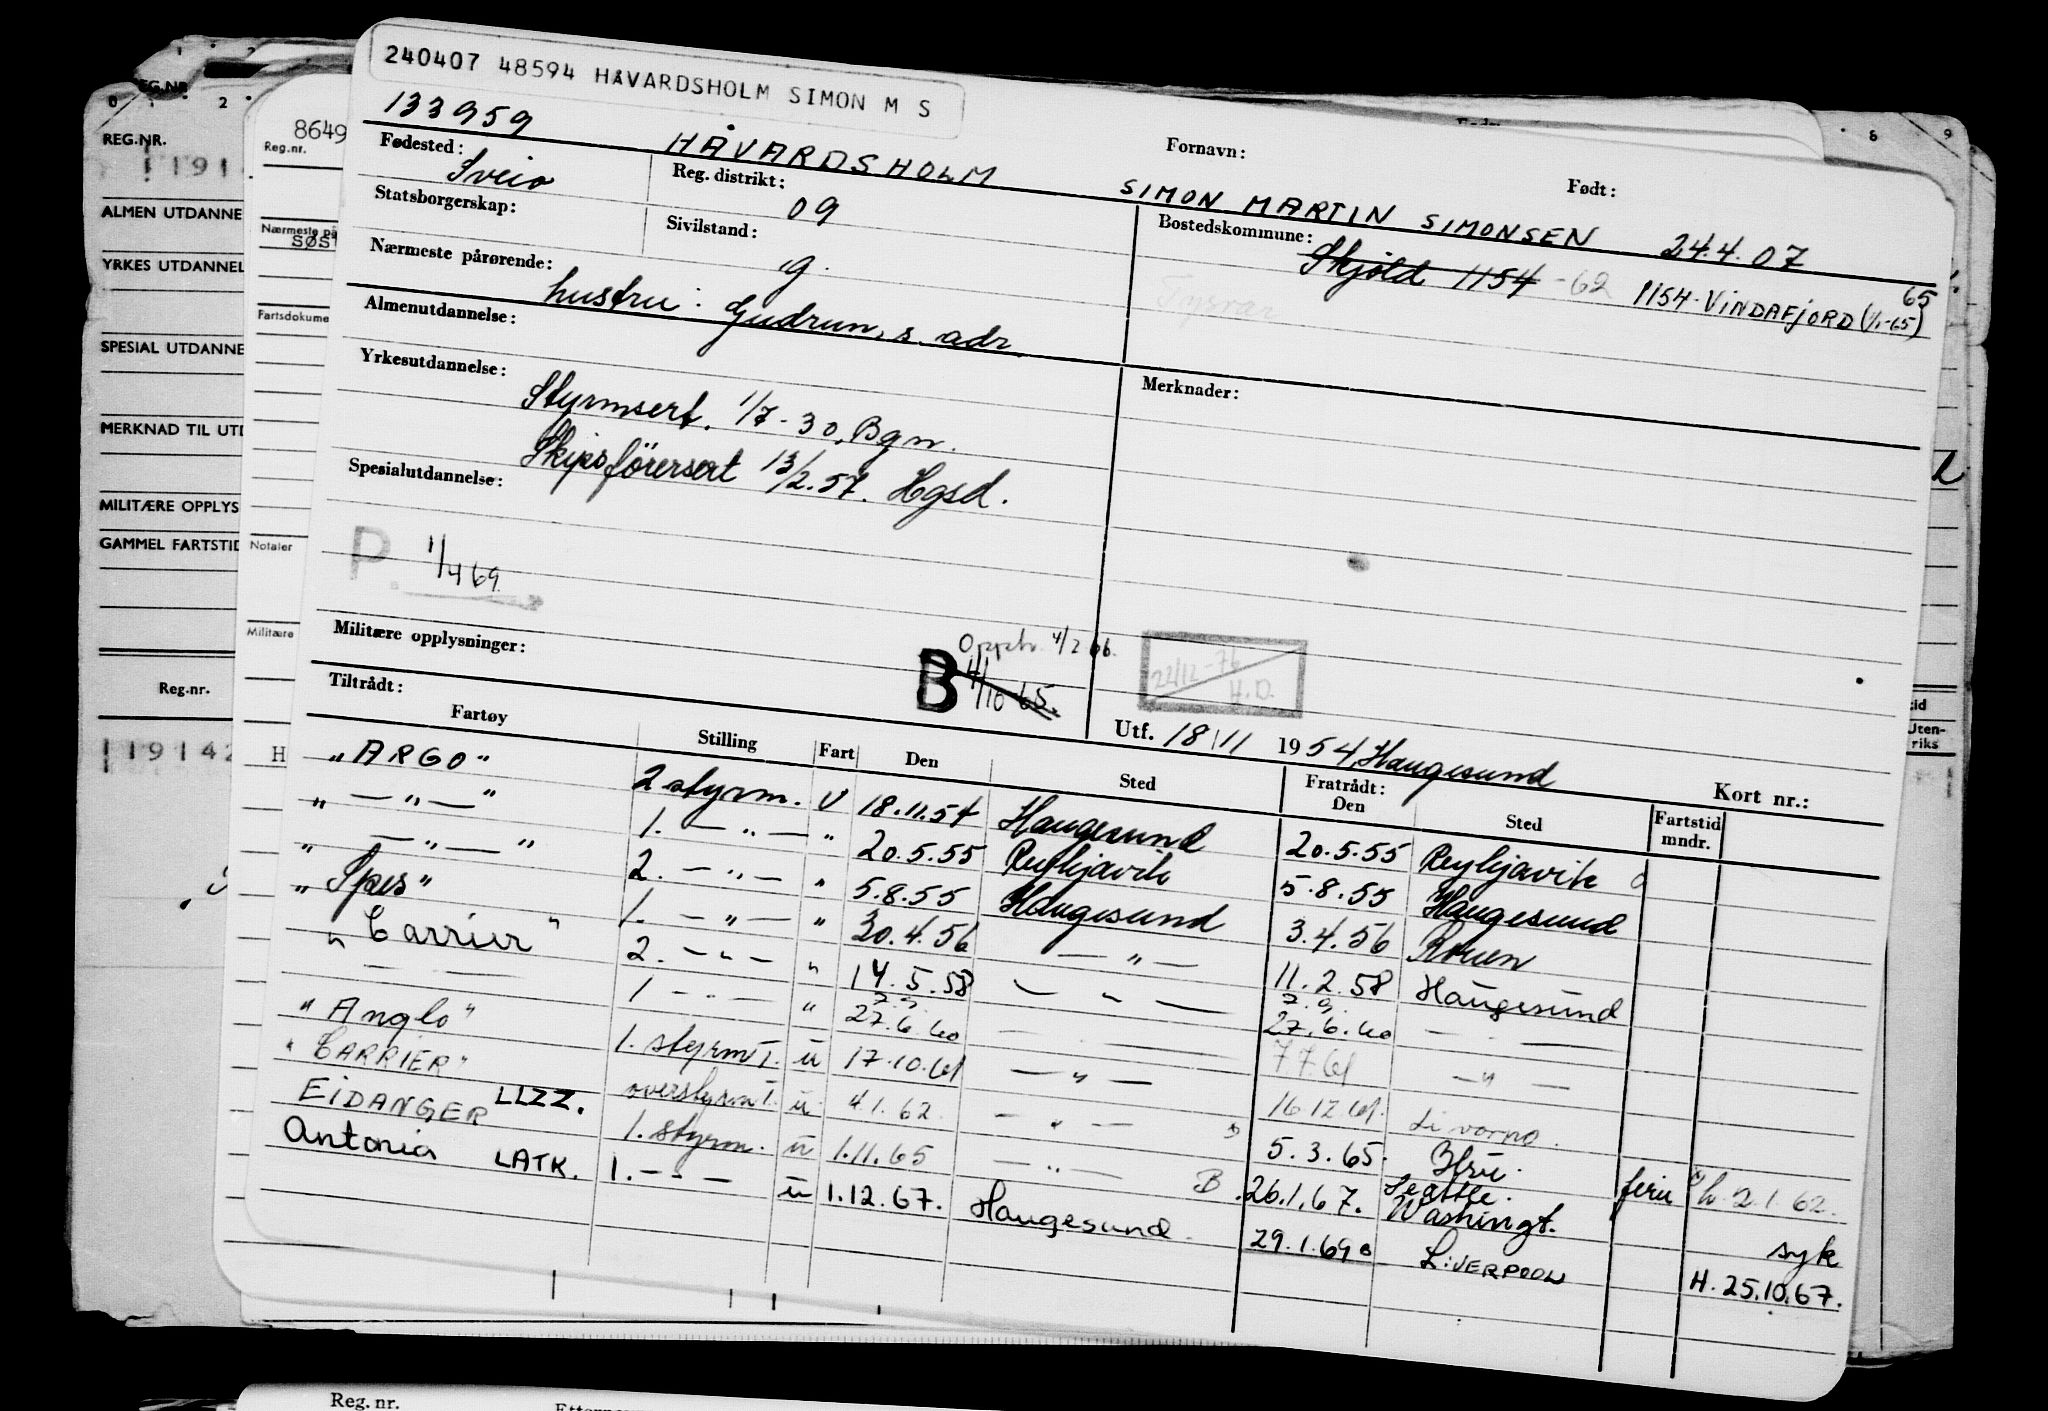 240407 48594 HAVARDSHOLM SIMON M S
133959 HÅVARDSHOLM Fornavn: SIMON MARTIN SIMONSEN Født: 24.4.07
Fødested: Sveio Reg. distrikt: 09 Bostedskommune: Skjold 1154 -62 1154-VINDAFJORD (1/1-65) 65
Statsborgerskap: Sivilstand: g. Tysvær
Nærmeste pårørende: hustru: Gudrun, s. adr.
Almenutdannelse: Merknader:
Yrkesutdannelse: Styrmsert. 1/7-30, Bgn.
Skipsförersert 13/2.57. Hgsd.
Spesialutdannelse:
P. 1/4 69.
Militære opplysninger: Opph. 4/2 66.
B 4/10-65. 22/12-76 H.D.
Tiltrådt: Utf. 18/11 1954, Haugesund Kort nr.:
Fartøy Stilling Fart Den Sted Fratrådt: Den Sted Fartstid mndr.
„ARGO" 2 styrm. U 18.11.54 Haugesund 20.5.55 Reykjavik
„—„—" 1. —„— „ 20.5.55 Reykjavik 5.8.55 Haugesund
„—„—" 2. —„— „ 5.8.55 Haugesund 3.4.56 Rouen
„Spes" 1. —„— „ 30.4.56 —„— 11.2.58 Haugesund
„Carrier" 2. —„— „ 14.5.58 —„— 27.6.60 —
— — 1 —.— „ 27.6.60 — 7.7.61 —„—
„Anglo" 1. styrm I. u 17.10.61 —„— 16.12.61. Livorno.
„CARRIER" overstyrm I. u 4.1.62. —„— 5.3.65. Hfru. ferie h. 2.1.62.
EIDANGER LLZZ. 1. styrm. u 1.11.65 —„— B. 26.1.67. Seattle. Washingt. syk
Antonia LATK. 1. — — — u 1.12.67. Haugesund. 29.1.69 LIVERPOOL H. 25.10.67.
REG.NR
0 1 2
REG.NR.
ALMEN UTDANNE
YRKES UTDANNEL
SPESIAL UTDANNE
MERKNAD TIL UTD
MILITÆRE OPPLYS
GAMMEL FARTSTID
Reg.nr.
19142
8649
Reg.nr.
Nærmeste på
SØST
Fartsdokume
Notater
Militære
H
8 9
Uten-
riks
Reg. nr.